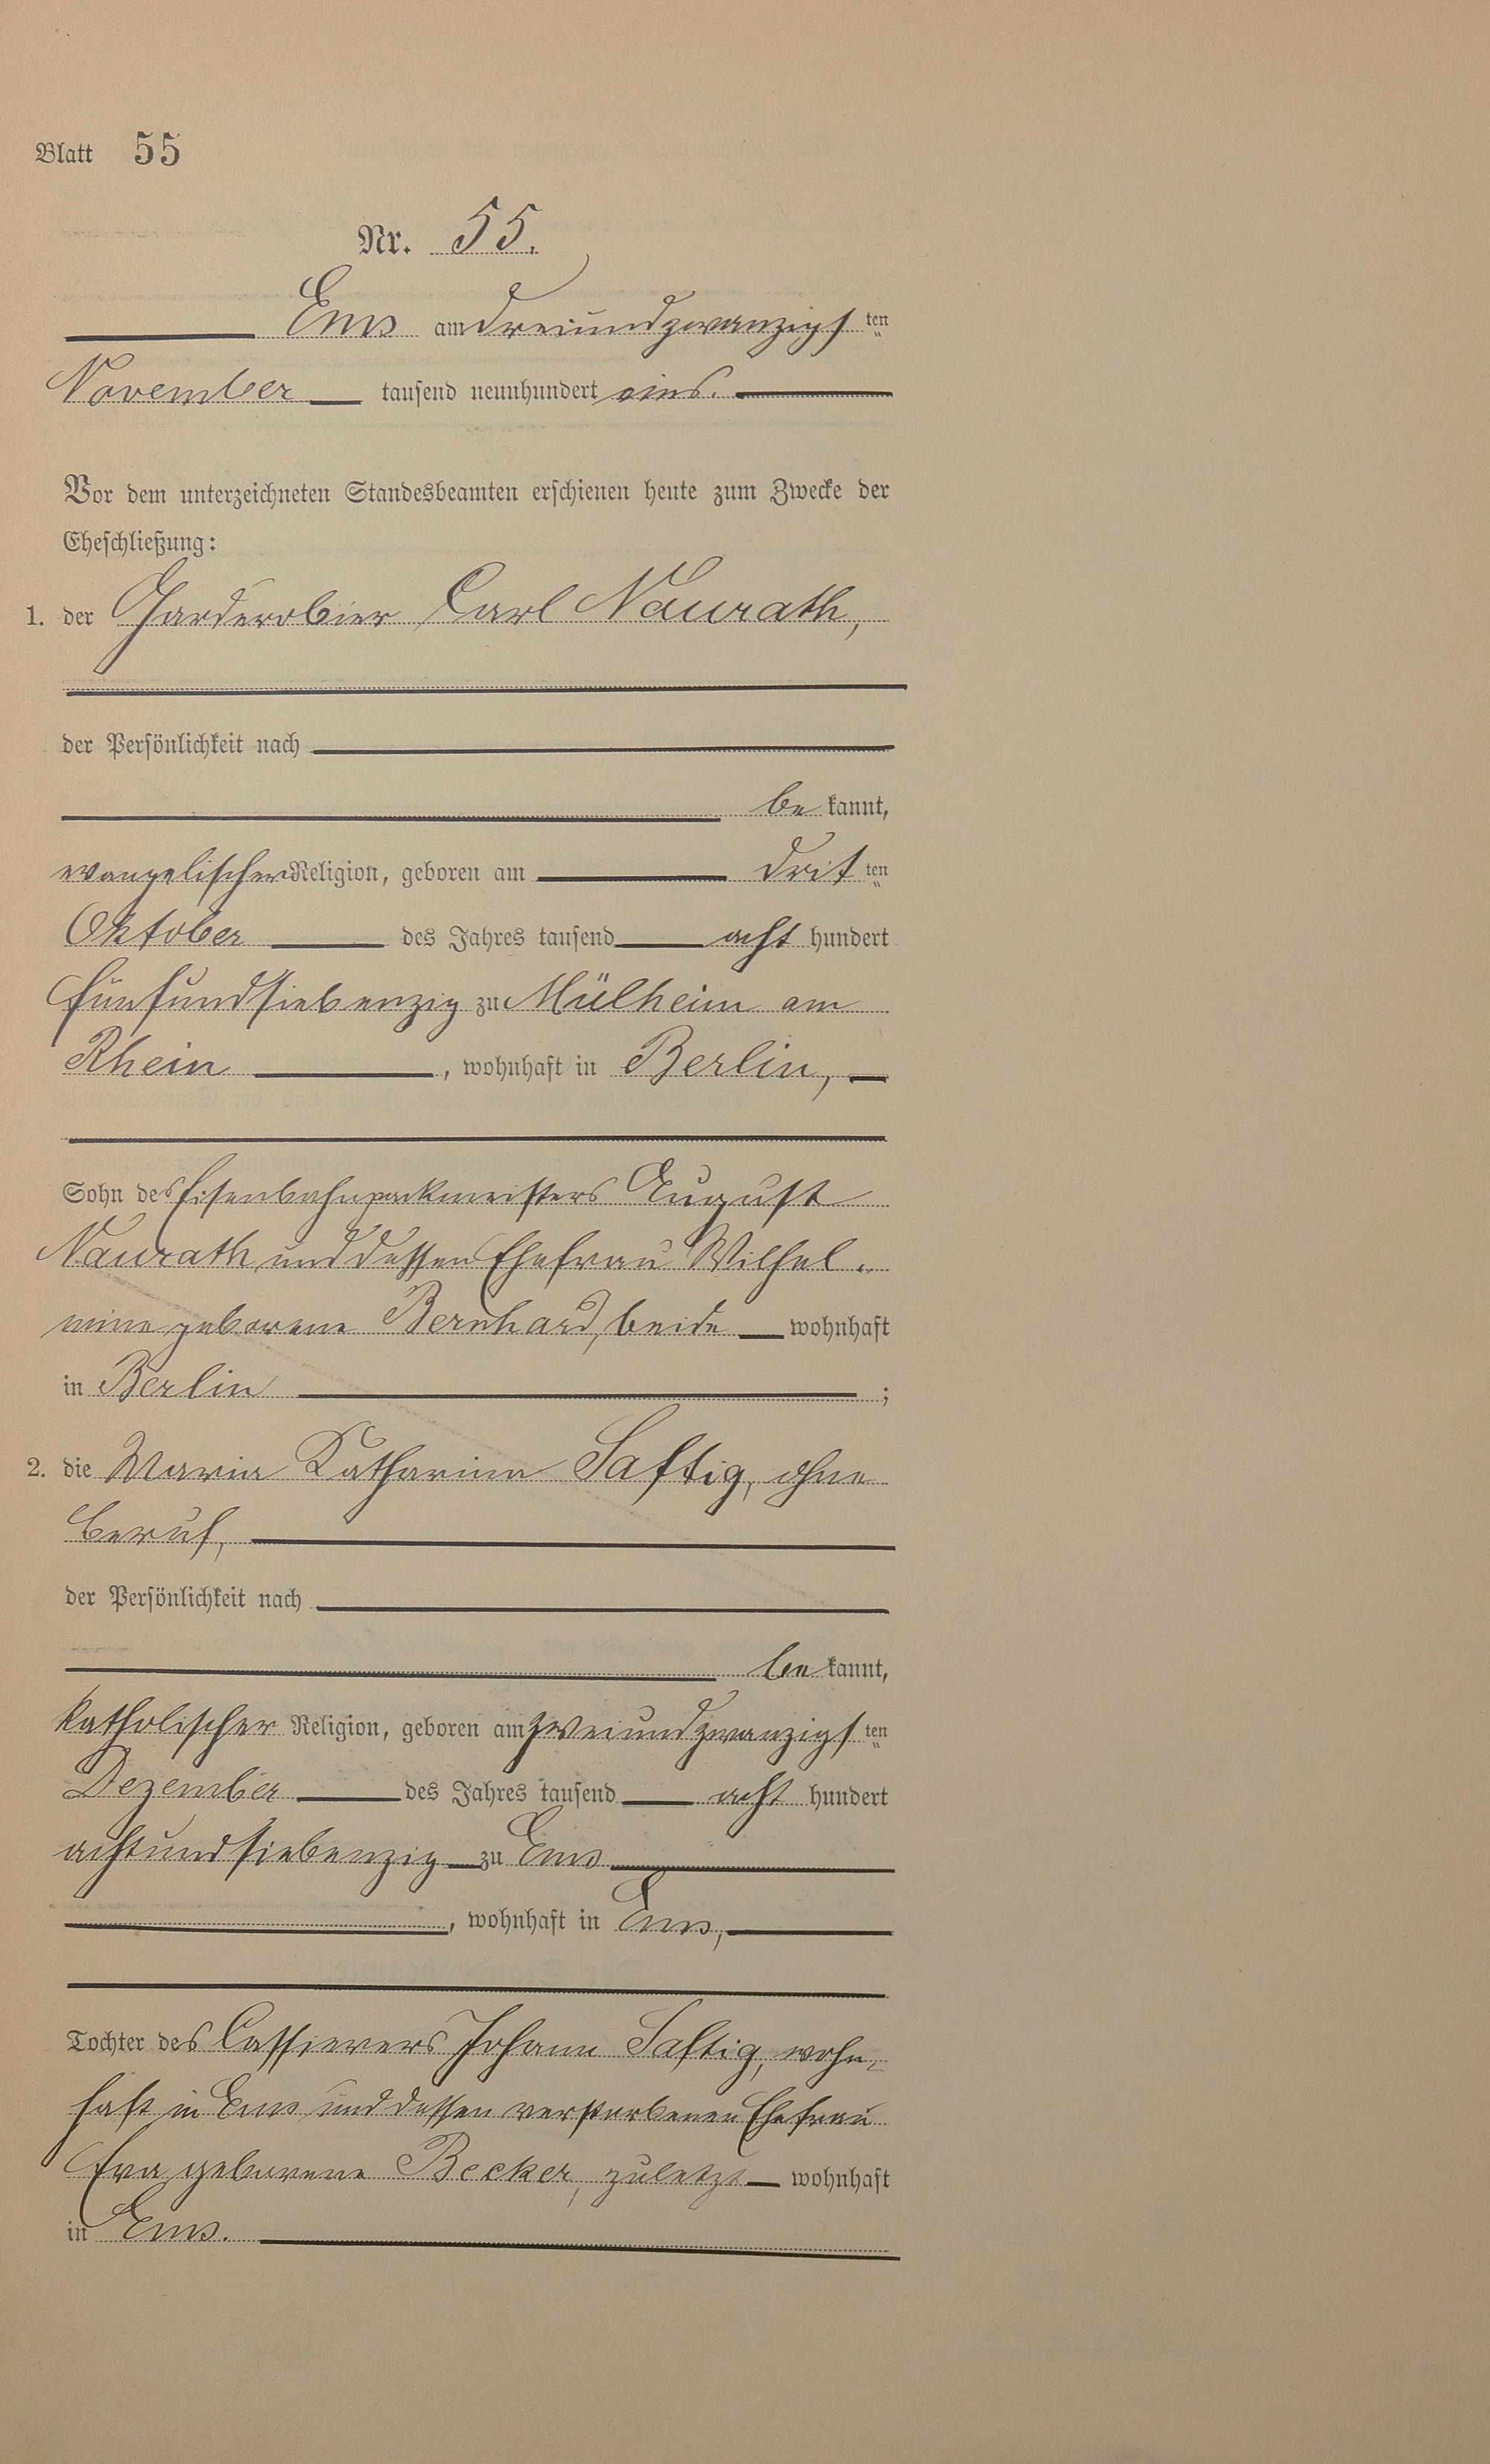 Blatt 55
Nr. 55.
Ems am dreiundzwanzigsten
November tausend neunhundert eins.
Vor dem unterzeichneten Standesbeamten erschienen heute zum Zwecke der
Eheschließung:
1. der Garderobier Carl Naurath,
der Persönlichkeit nach
bekannt,
evangelischer Religion, geboren am dritten
Oktober des Jahres tausend acht hundert
fünfundsiebenzig zu Mülheim am
Rhein, wohnhaft in Berlin,
Sohn des Eisenbahnpackmeisters August
Naurath und dessen Ehefrau Wilhel-
mine geborene Bernhard, beide wohnhaft
in Berlin ;
2. die Maria Katharina Saftig, ohne
Beruf,
der Persönlichkeit nach
bekannt,
katholischer Religion, geboren am zweiundzwanzigsten
Dezember des Jahres tausend acht hundert
achtundsiebenzig zu Ems
, wohnhaft in Ems,
Tochter des Cassierers Johann Saftig, wohn-
haft in Ems und dessen verstorbenen Ehefrau
Eva geborene Becker, zuletzt wohnhaft
in Ems.